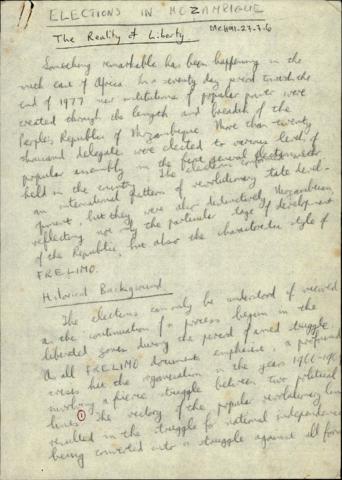 ELECTIONS IN MOZAMBIQUE
The Reality of Liberty MCH91-27-7-6
Something remarkable has been happening in the
south east of Africa. In a twenty day period towards the
end of 1977 new institutions of popular power were
created through the length and breadth of the
People's Republic of Mozambique. More than twenty
thousand delegates were elected to various levels of
popular assembly in the first general elections ever
held in the country. The elections conformed with
an international pattern of revolutionary state devel-
opment, but they were also distinctively Mozambican,
reflecting not only the particular stage of development
of the Republic, but also the characteristic style of
FRELIMO.
Historical Background
The elections can only be understood if viewed
as the continuation of a process begun in the
liberated zones during the period of armed struggle.
As all FRELIMO documents emphasise, a profound
crisis hit the organisation in the years
involving a fierce struggle between two political
lines. 1 The victory of the popular revolutionary line
resulted in the struggle for national independence
being converted into a struggle against all forms